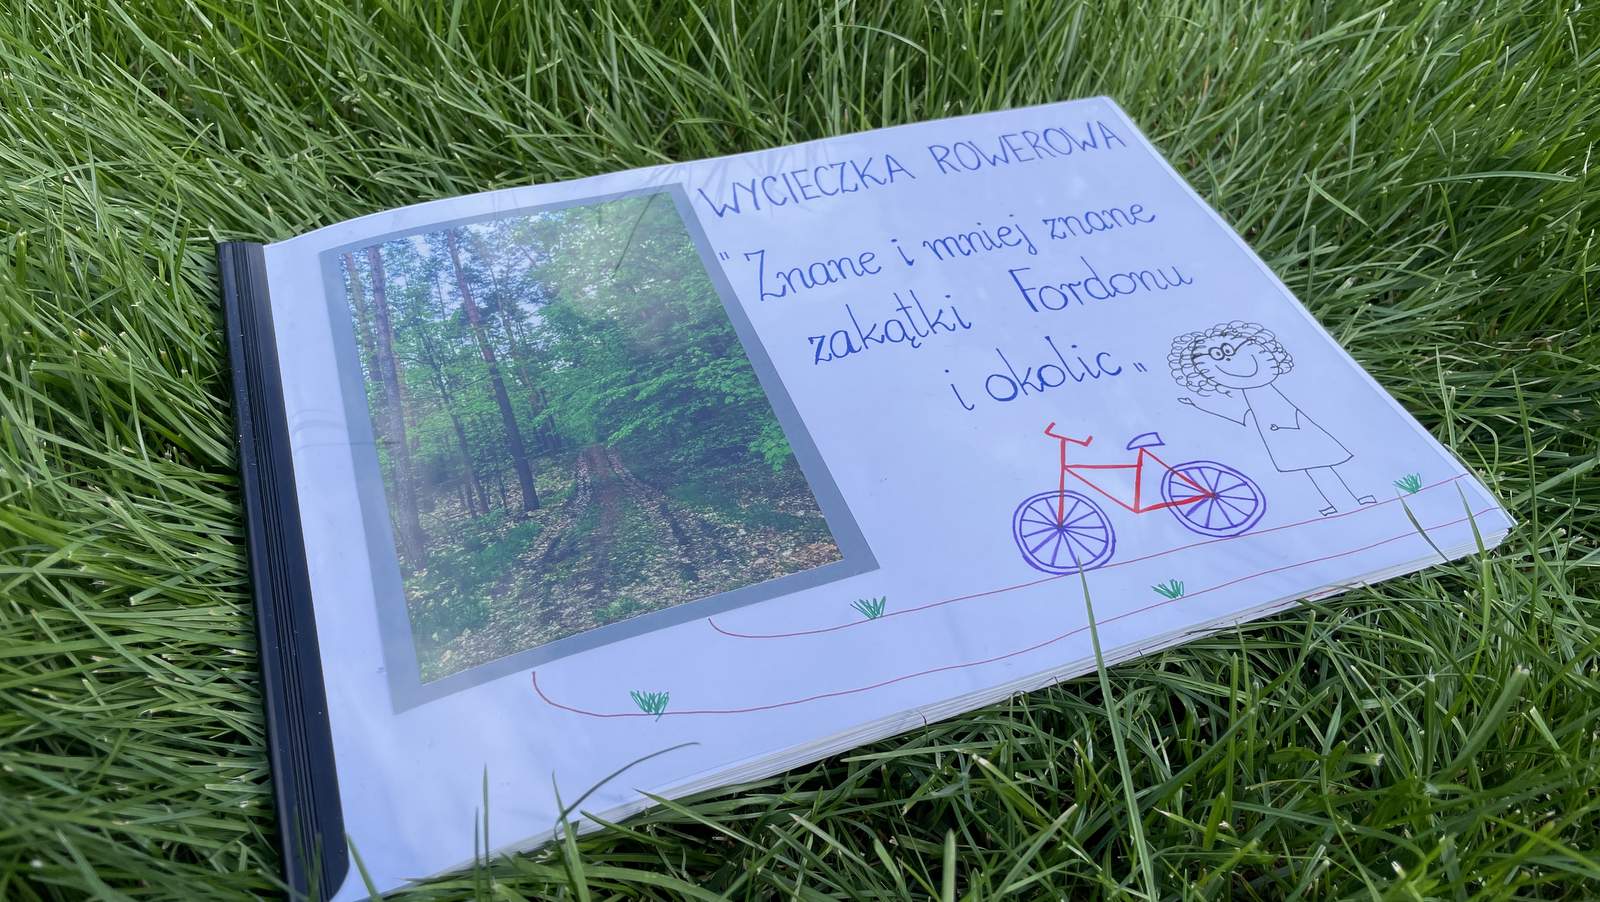 WYCIECZKA ROWEROWA
"Znane i mniej znane
zakątki Fordonu
i okolic„